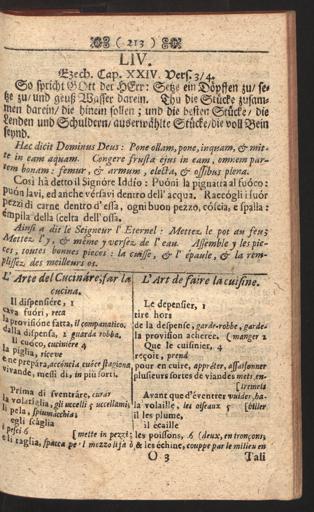 ( 213 )
LIV.
Ezech. Cap. XXIV. Vers. 3/4.
So spricht GOtt der HErr: Setze ein Döpffen zu/ se-
tze zu/ und geuß Wasser darein. Thu die Stücke zusam-
men darein/ die hinein sollen; und die besten Stücke/ die
Lenden und Schuldern/ außerwählte Stücke/ die voll Bein
seynd.
Hæc dicit Dominus Deus: Pone ollam, pone, inquam, & mit-
te in eam aquam. Congere frusta ejus in eam, omnem par-
tem bonam: femur, & armum, electa, & ossibus plena.
Così hà detto il Signóre Iddío: Puóni la pignatta al fuóco:
puón lavi, ed anche vérsavi dentro dell' acqua. Raccógli i suói
pezzi di carne dentro d'essa, ogni buon pezzo, cóscia, e spalla:
émpila della scelta dell' ossa.
Ainsi a dit le Seigneur l' Eternel: Mettez le pot au feu;
Mettez l'y, & même y versez de l' eau. Assemble y les pie-
ces, toutes bonnes pieces: la cuisse, & l' épaule, & la rem-
plissez des meilleurs os.
L' Arte del Cucináre, far la
cucína.
Il dispensiére, 1
cava fuóri, reca
la provisióne fatta, il companatico,
dalla dispensa, 2 guarda robba.
Il cuóco, cuciniére 4
la píglia, riceve
e ne prépara, accóncia cuóce stagióna
vivande, messi di, in piu sorti.
Prima di sventráre, curar
la volatíglia, gli uccelli 5 uccellami,
li pela, spiumácchia
egli scáglia
i pesci 6 [mette in pezzi:
e li taglia, spacca pe 'l mezzo lijà ò
L' Art de faire la cuisine.
Le depensier, 1
tire hors
de la despense, garde-robbe, garde-
la provision acherée. [manger 2
Que le cuisinier, 4
reçoit, prend
pour en cuire, apprêter, assaisonner
plusieurs sortes de viandes mets en-
[tremets
Avant que d'éventrer vuider, ha-
la volaille, les oiseaux 5 [biller
il les plume,
il écaille
les poissons, 6 (deux, en tronçons,
& les échine, couppe par le milieu en
O 3 Tali